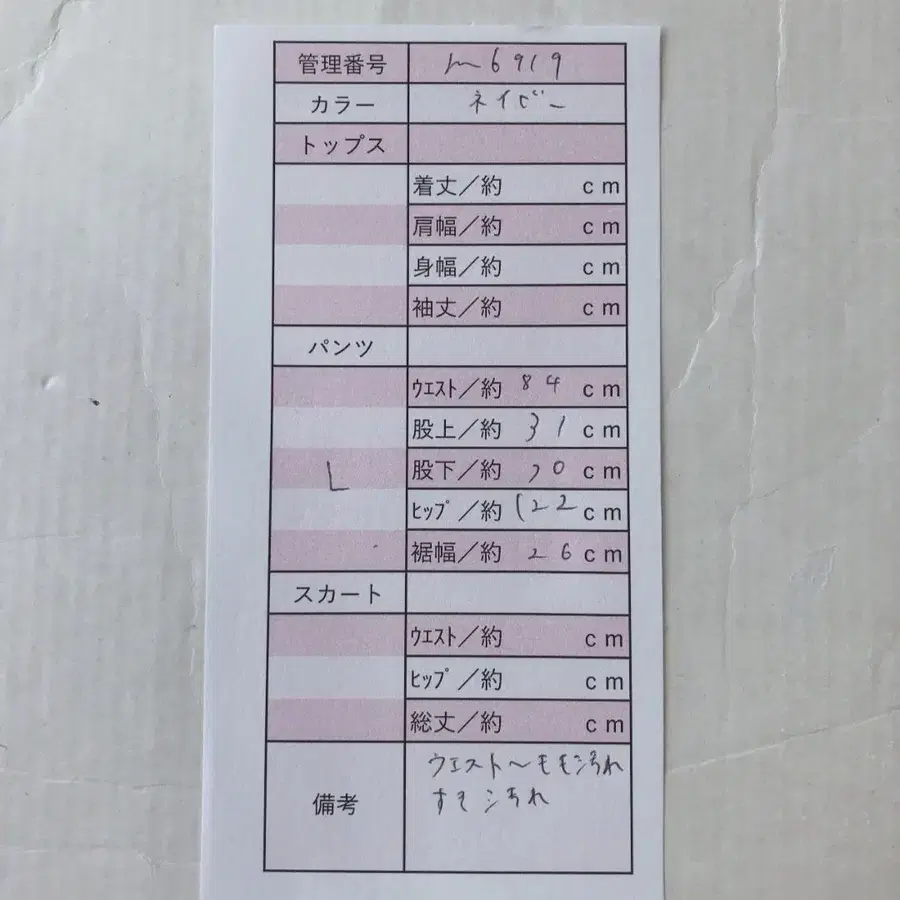 管理番号 m6919
カラー ネイビー
トップス
着丈／約 cm
肩幅／約 cm
身幅／約 cm
袖丈／約 cm
パンツ
ｳｴｽﾄ／約 84 cm
股上／約 31 cm
L 股下／約 70 cm
ﾋｯﾌﾟ／約 122 cm
裾幅／約 26 cm
スカート
ｳｴｽﾄ／約 cm
ﾋｯﾌﾟ／約 cm
総丈／約 cm
備考 ウエスト〜もも汚れ
すそ汚れ